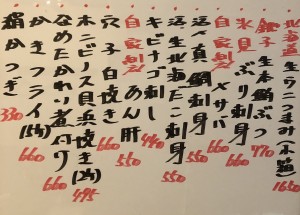 北海道 生うにつまみ(小箱) 1650
銚子 生本鮪ぶつ 770
氷見 ぶり刺身 660
自家製 〆サバ 660
活〆真鯛刺身 550
北海道 生たこ刺身 550
キビナゴ刺し 440
自家製 あん肝 550
穴子白焼き 660
本ニビノス貝浜焼き(1ヶ) 495
なめたかれい煮付け 660
かきフライ(5ケ) 660
鰯かつ 330